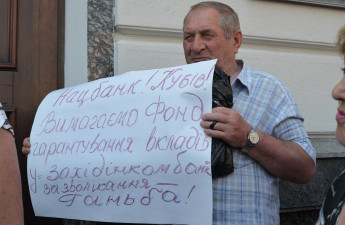 Нацбанк! Кубів!
Вимагаємо Фонд
гарантування вкладів
у „Західінкомбанк
за зволікання
Ганьба!